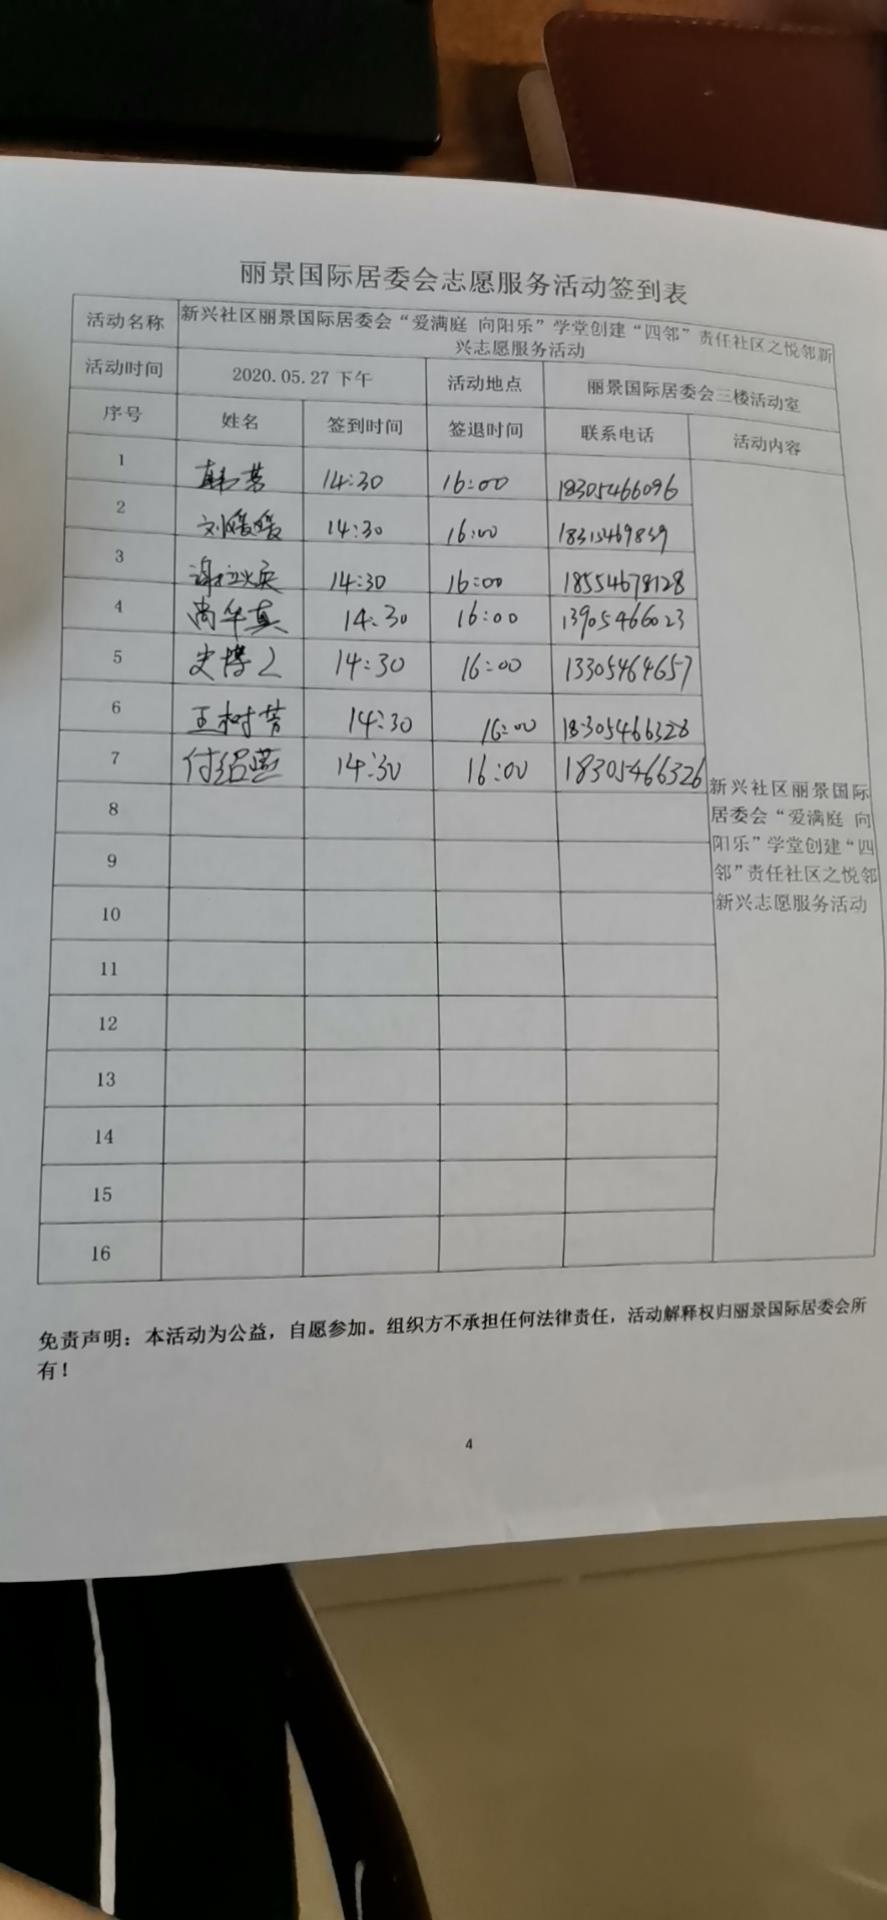 丽景国际居委会志愿服务活动签到表
活动名称 新兴社区丽景国际居委会“爱满庭 向阳乐”学堂创建“四邻”责任社区之悦邻新
兴志愿服务活动
活动时间 2020.05.27 下午 活动地点 丽景国际居委会三楼活动室
序号 姓名 签到时间 签退时间 联系电话 活动内容
1 韩 14:30 16:00 18305466096
2 刘媛媛 14:30 16:00
3 14:30 16:00 18554678128
4 尚华真 14:30 16:00 13905466023
5 史 14:30 16:00 13305464657
6 王树芳 14:30 16:00 18305466328
7 付绍燕 14:30 16:00 18305466326
新兴社区丽景国际
居委会“爱满庭 向
阳乐”学堂创建“四
邻”责任社区之悦邻
新兴志愿服务活动
8
9
10
11
12
13
14
15
16
免责声明：本活动为公益，自愿参加。组织方不承担任何法律责任，活动解释权归丽景国际居委会所
有！
4